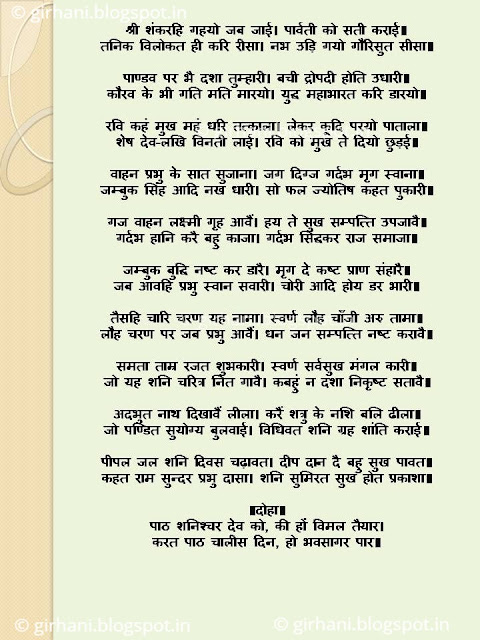 © girhani.blogspot.in
© girhani.blogspot.in
श्री शंकरहि गहयो जब जाई। पार्वती को सती कराई।
तनिक विलोकत ही करि रीसा। नभ उड़ि गयो गौरिसुत सीसा॥
पाण्डव पर भै दशा तुम्हारी। बची द्रोपदी होति उधारी॥
कौरव के भी गति मति मारयो। युद्ध महाभारत करि डारयो॥
रवि कहं मुख महं धरि तत्काला। लेकर कूदि परयो पाताला॥
शेष देव-लखि विनती लाई। रवि को मुख ते दियो छुड़ई॥
वाहन प्रभु के सात सुजाना। जग दिग्ज गर्दभ मृग स्वाना॥
जम्बुक सिंह आदि नख धारी। सो फल ज्योतिष कहत पुकारी॥
गज वाहन लक्ष्मी गृह आवैं। हय ते सुख सम्पत्ति उपजावै॥
गर्दभ हानि करै बहु काजा। गर्दभ सिंद्धकर राज समाजा॥
जम्बुक बुद्धि नष्ट कर डारै। मृग दे कष्ट प्राण संहारै॥
जब आवहिं प्रभु स्वान सवारी। चोरी आदि होय डर भारी॥
तैसहि चारि चरण यह नामा। स्वर्ण लौह चाँजी अरु तामा॥
लौह चरण पर जब प्रभु आवैं। धन जन सम्पत्ति नष्ट करावै॥
समता ताम्र रजत शुभकारी। स्वर्ण सर्वसुख मंगल कारी॥
जो यह शनि चरित्र नित गावै। कबहुं न दशा निकृष्ट सतावै॥
अदभुत नाथ दिखावैं लीला। करैं शत्रु के नशि बलि ढीला॥
जो पण्डित सुयोग्य बुलवाई। विधिवत शनि ग्रह शांति कराई॥
पीपल जल शनि दिवस चढ़ावत। दीप दान दै बहु सुख पावत॥
कहत राम सुन्दर प्रभु दासा। शनि सुमिरत सुख होत प्रकाशा॥
॥दोहा॥
पाठ शनिश्चर देव को, की हों विमल तैयार।
करत पाठ चालीस दिन, हो भवसागर पार॥
© girhani.blogspot.in
© girhani.blogspot.in